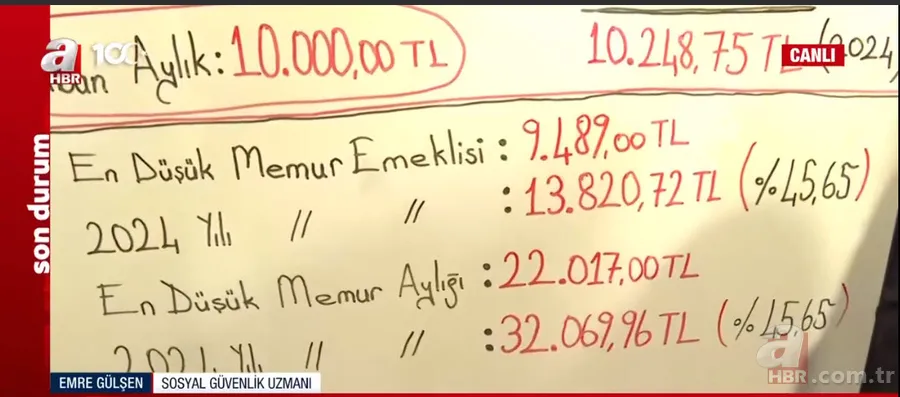 a HBR 100
Taban Aylık: 10.000,00 TL 10.248,75 TL (2024
CANLI
son durum
En Düşük Memur Emeklisi : 9.489,00 TL
2024 Yılı // // : 13.820,72 TL (%45,65)
En Düşük Memur Aylığı : 22.017,00 TL
2024 Yılı // // : 32.069,96 TL (%45,65)
EMRE GÜLŞEN SOSYAL GÜVENLİK UZMANI
a HBR.com.tr